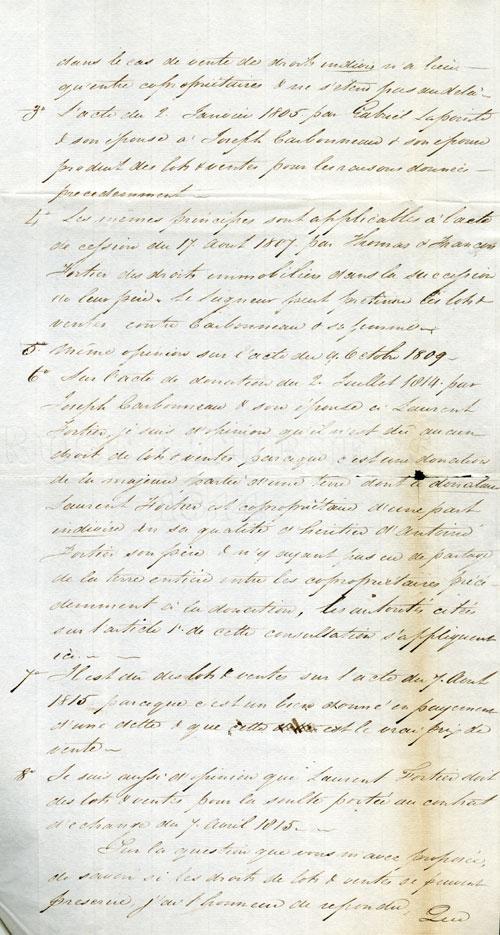 dans le cas de vente de droits indivis n'a lieu
qu'entre copropriétaires & ne s'étend pas au delà
3° L'acte du 2. Janvier 1805 par Gabriel Lapointe
& son épouse à Joseph Carbonneau & son épouse
produit des lots & ventes pour les raisons données
precedemment
4° Les mêmes principes sont applicables à l'acte
de cession du 17 Aout 1807 par Thomas & Francois
Fortier des droits immobiliers dans la succession
de leur père. Le Seigneur peut pretendre les lots &
ventes contre Carbonneau & sa femme
5° même opinion sur l'acte du 9 Octbre 1809
6° Sur l'acte de donation du 2. Juillet 1814 par
Joseph Carbonneau & son épouse à Laurent
Fortier, je suis d'opinion qu'il n'est dû aucun
droit de lots & ventes parceque c'est une donation
de la majeure partie d'une terre dont donataire
Laurent Fortier est copropriétaire d'une part
indivise en sa qualité d'heritier d'Antoine
Fortier son père & n'y ayant pas eu de partage
de la terre entière entre les copropriétaires précé
demment à la donation, les autorités citées
sur l'article 1er de cette consultation s'appliquent
ici.
7° Il est dû des lots & ventes sur l'acte du 7. Avril
1815 parceque c'est un bien donné en payement
d'une dette & que cette est le vrai prix de
vente
8° Je suis aussi d'opinion que Laurent Fortier doit
des lots & ventes pour la soulte portée au contrat
d'echange du 7. Avril 1815.
Sur la question que vous m'avez proposée,
de savoir si les droits de lots & ventes se peuvent
prescrire, j'ai l'honneur de repondre,
Que